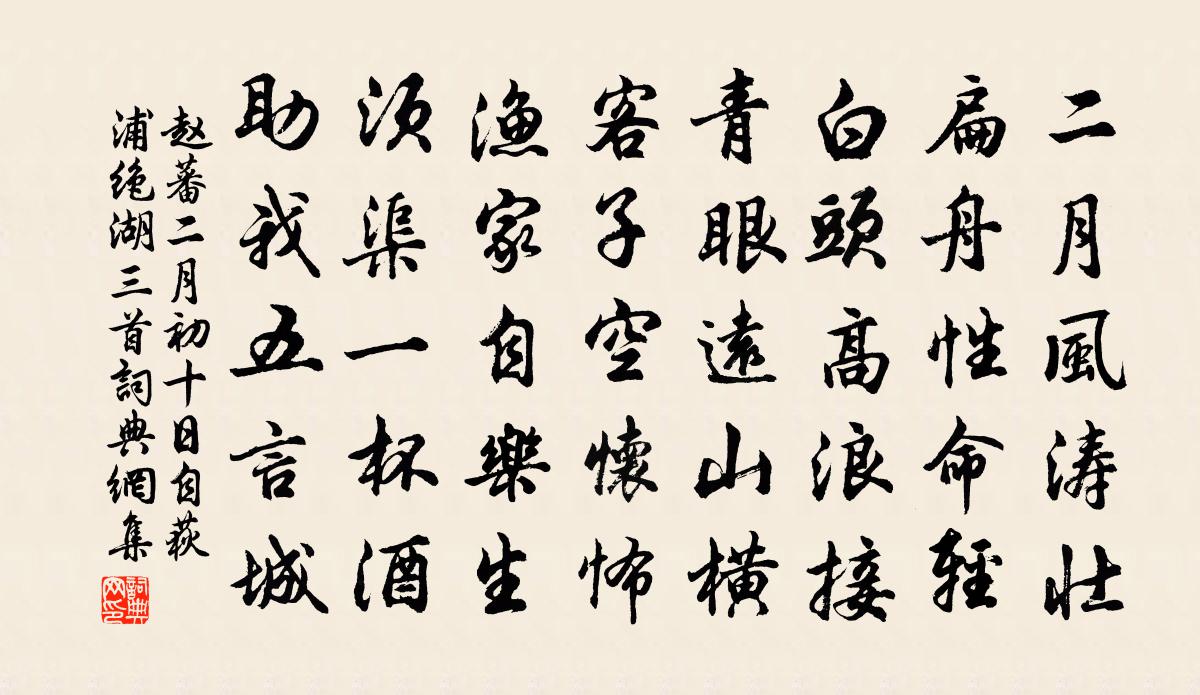 二月風涛壮
扁舟性命輕
白頭高浪接
青眼遠山橫
客子空懷怖
漁家自樂生
須渠一杯酒
助我五言城
赵蕃二月初十日自荻
浦絶湖三首詞典網集
詞典網印